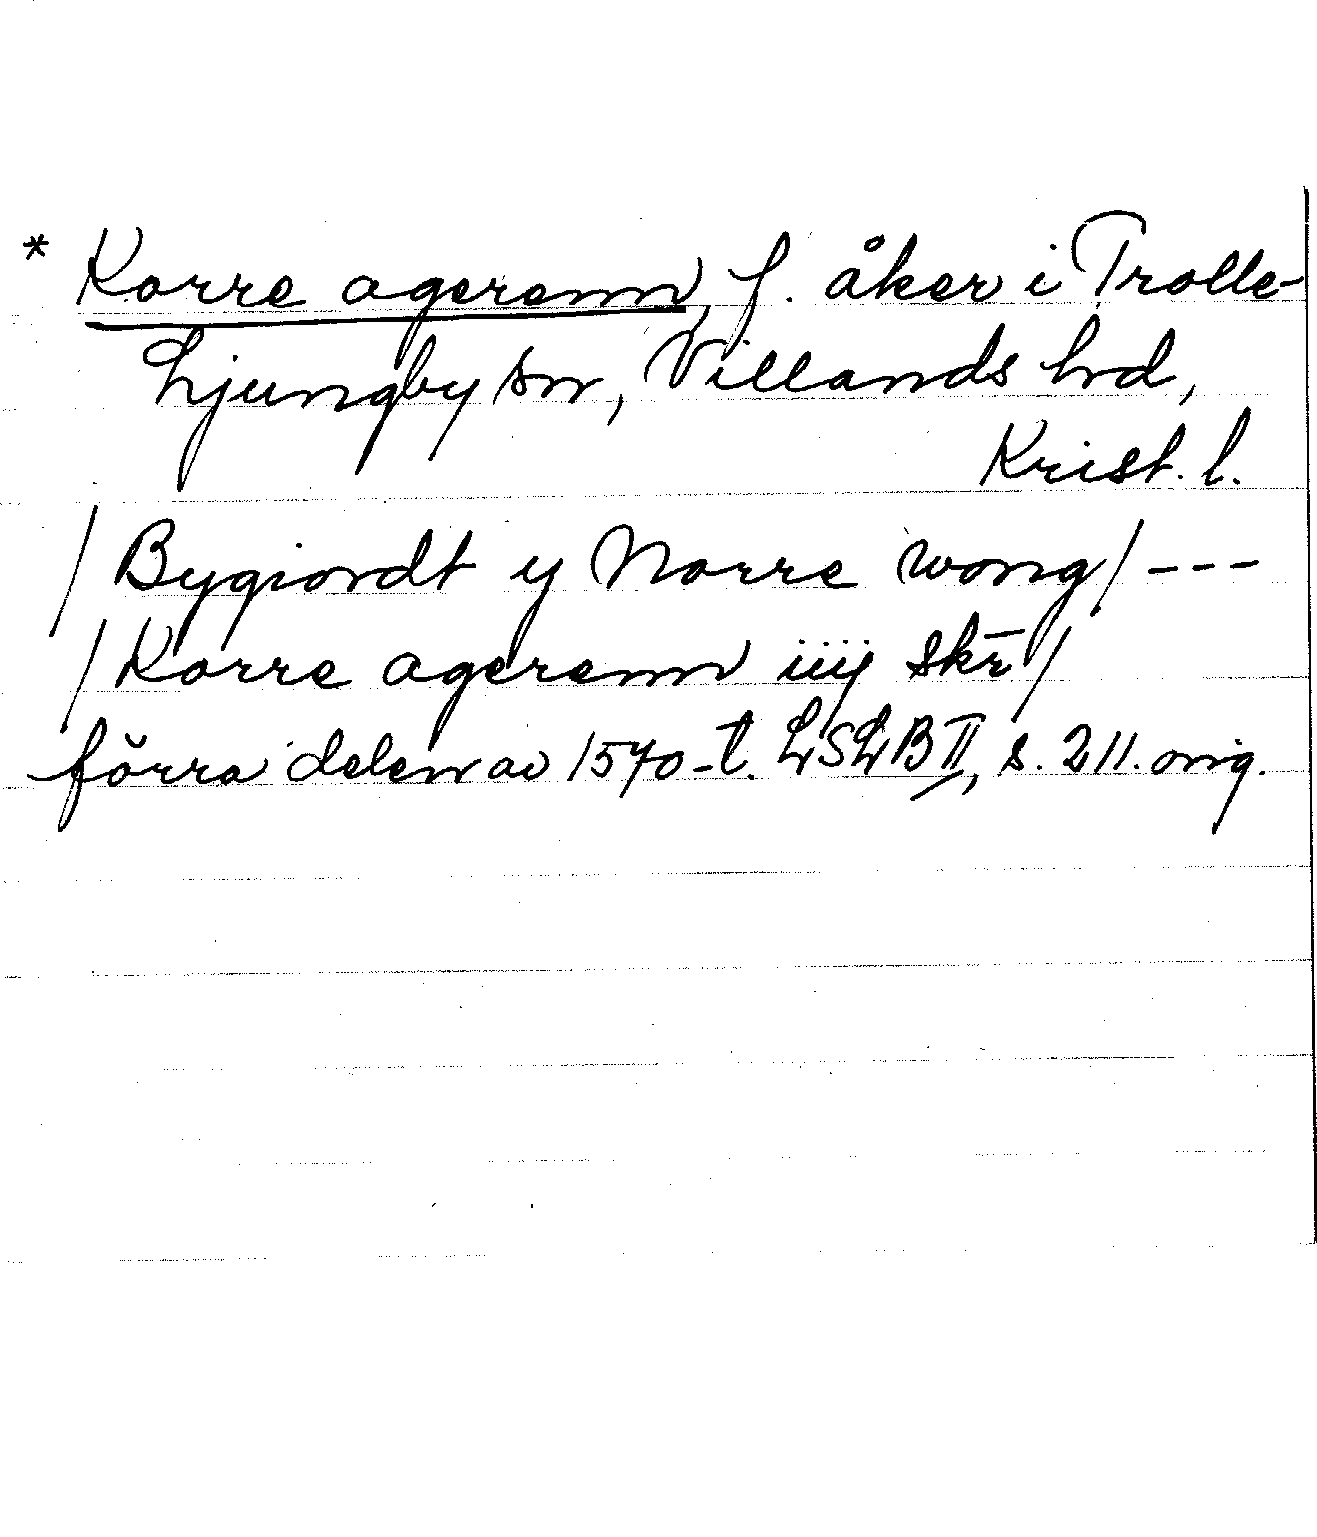 * Korre agerenn, f. åker i Trolle-
Ljungby sn, Villands hd,
Krist. l.
/ Bygiordt y Norre wong / ---
/ Korre agerenn iiij skr̄ /
förra delen av 1570-t. LSLB II, s. 211. orig.